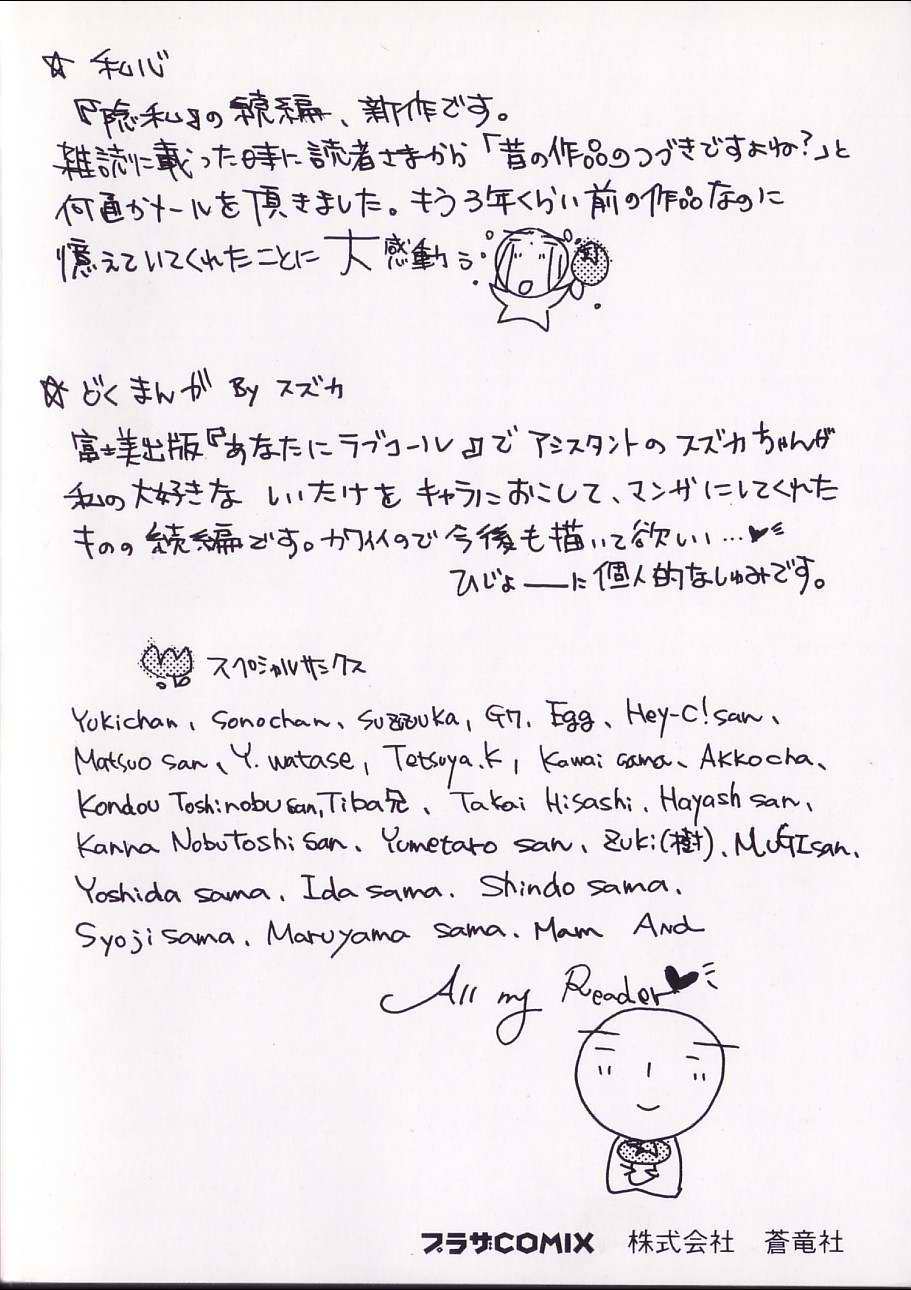 ☆ 私心
『隠私』の続編、新作です。
雑誌に載った時に読者さまから「昔の作品のつづきですよね?」と
何通かメールを頂きました。もう3年くらい前の作品なのに
憶えていてくれたことに 大感動
☆ どくまんが By スズカ
富士美出版『あなたにラブコール』でアシスタントのスズカちゃんが
私の大好きな しいたけを キャラにおこして、マンガにしてくれた
ものの続編です。カワイイので今後も描いて欲しい…♥
ひじょーーに個人的なしゅみです。
スペシャルサンクス
Yukichan、Sonochan、Suzzuka, G7, Egg、Hey-C!san、
Matsuo san、Y. watase, Tetsuya.K, Kawai sama、AKKocha、
Kondou Toshinobu san, Tiba兄、Takai Hisashi、Hayash san、
Kanna Nobutoshi san、Yumetaro san、Zuki(樹)、MUGIsan、
Yoshida sama、Ida sama. Shindo sama.
Syoji sama、Maruyama sama、Mam And
All my Reader♥
プラザCOMIX 株式会社 蒼竜社